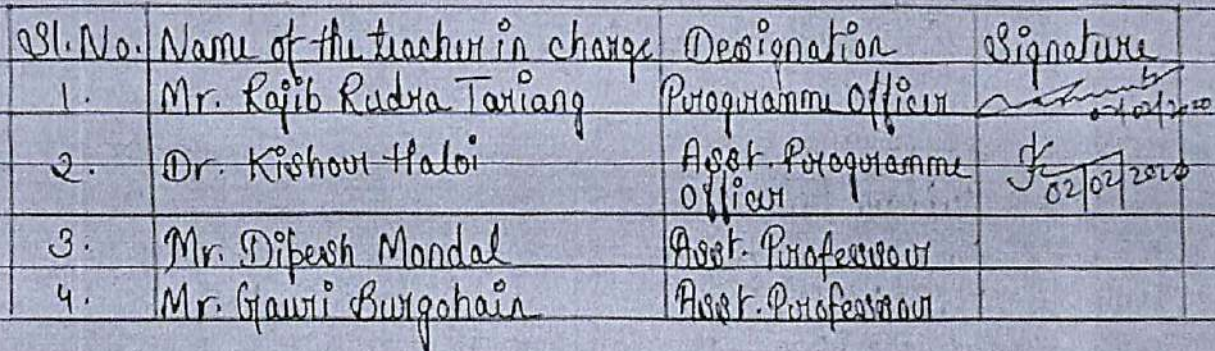 Sl. No. Name of the teacher in charge Dessignation Signature
1. Mr. Rajib Rudra Tariang Programme Officer 02/02/2020
2. Dr. Kishour Haloi Asst. Programme 02/02/2020
Officer
3. Mr. Dipesh Mondal Asst. Professour
4. Mr. Gauri Burgohain Asst. Professour